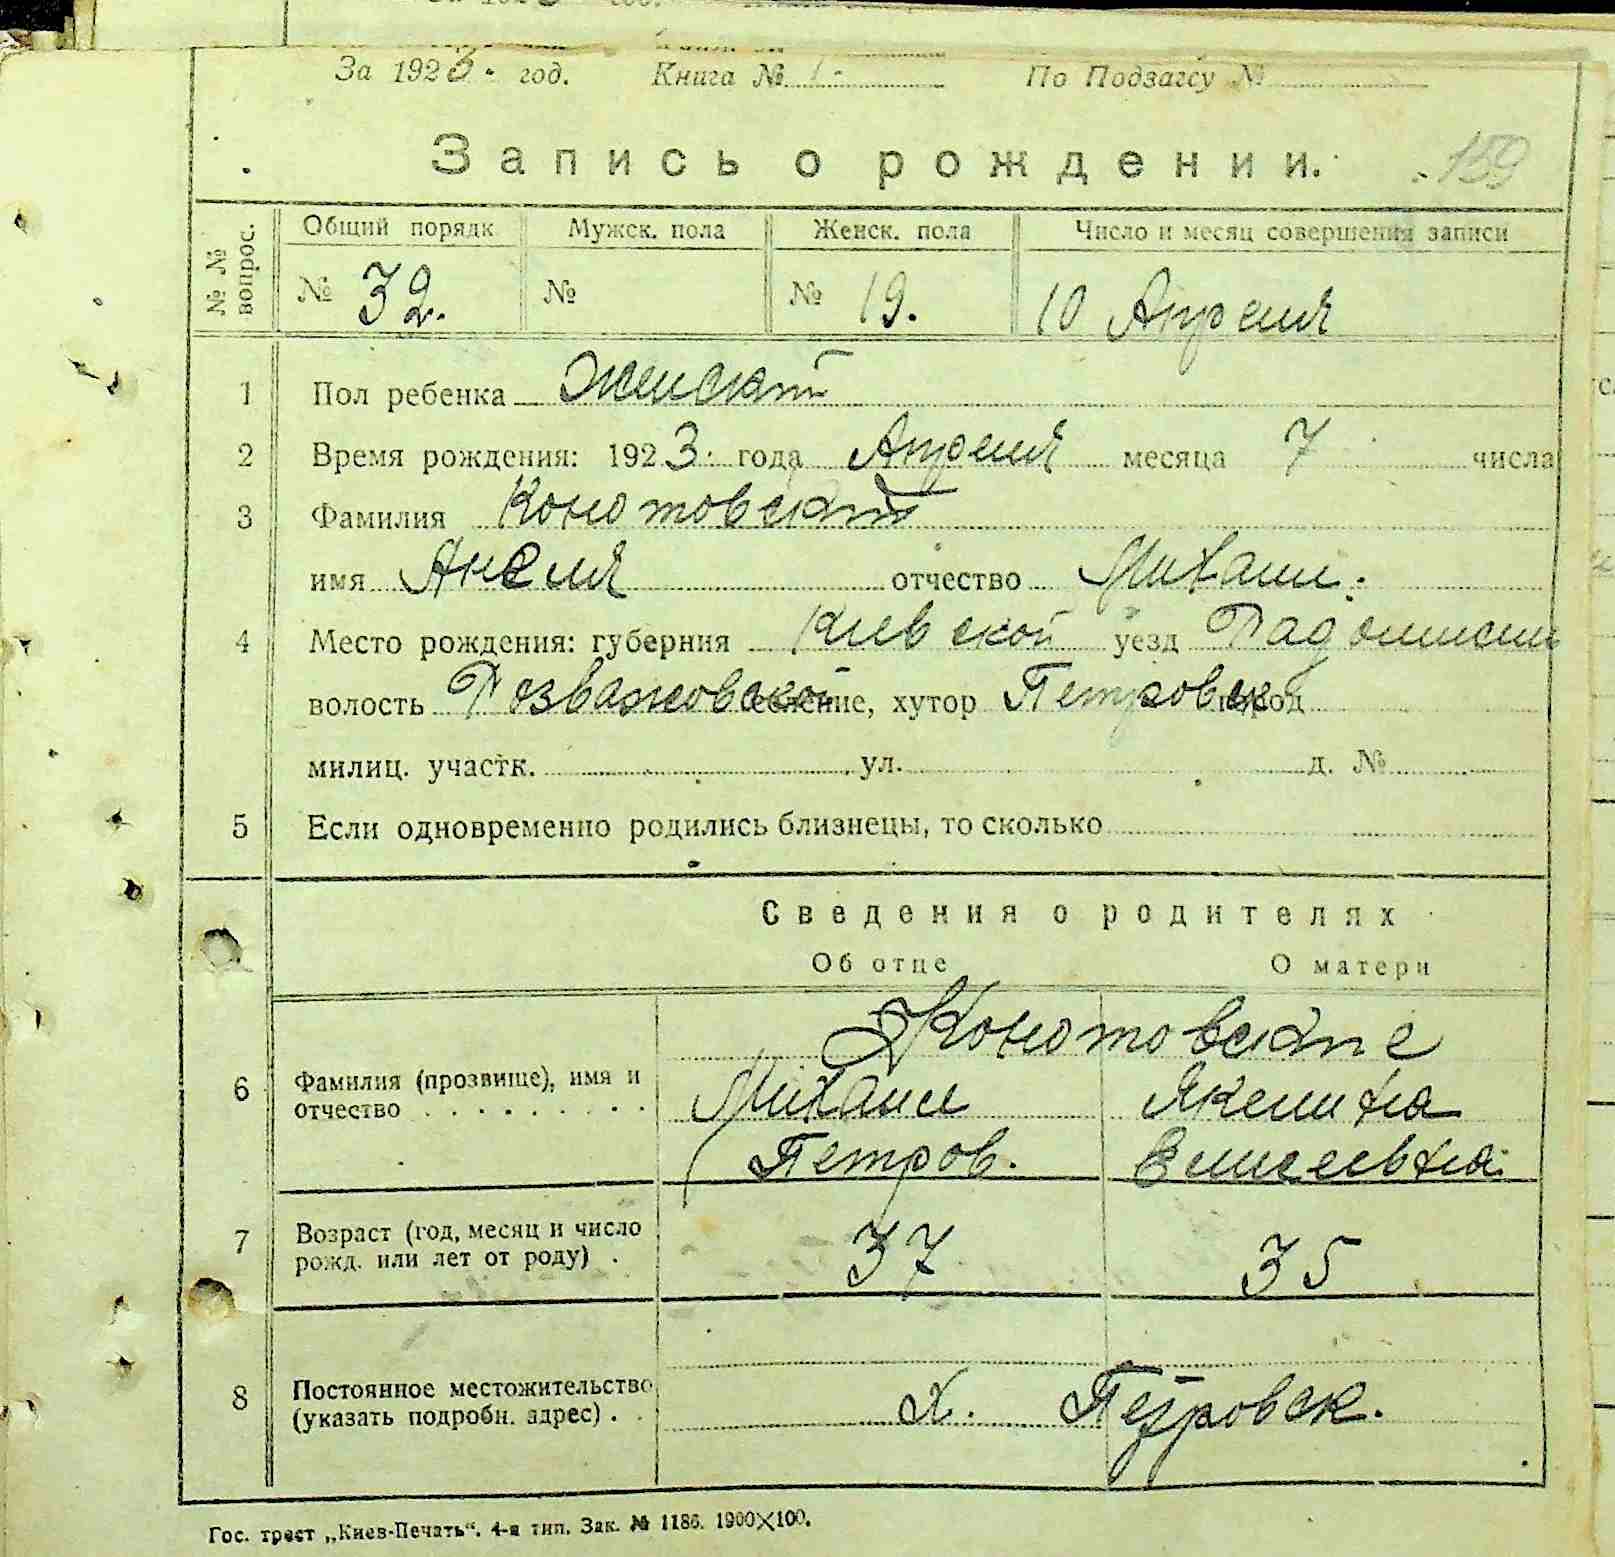 За 1923. год. Книга № 1. По Подзагсу №
Запись о рождении. 159
№ № вопрос. Общий порядк Мужск. пола Женск. пола Число и месяц совершения записи
№ 32. № № 19. 10 Апреля
1 Пол ребенка Женский
2 Время рождения: 1923. года Апреля месяца 7 числа
3 Фамилия Конотовский
имя Анеля отчество Михаил.
4 Место рождения: губерния Киевской уезд Радомисл
волость Розважовской селение, хутор Петровск город
милиц. участк. ул. д. №
5 Если одновременно родились близнецы, то сколько
Сведения о родителях
Об отце О матери
Конотовские
6 Фамилия (прозвище), имя и отчество Михаил Петров. Якелина Елисеевна
7 Возраст (год, месяц и число рожд. или лет от роду) . 37 35
8 Постоянное местожительство (указать подробн. адрес) . . Х. Петровск.
Гос. трест „Киев-Печать“. 4-я тип. Зак. № 1186. 1900×100.